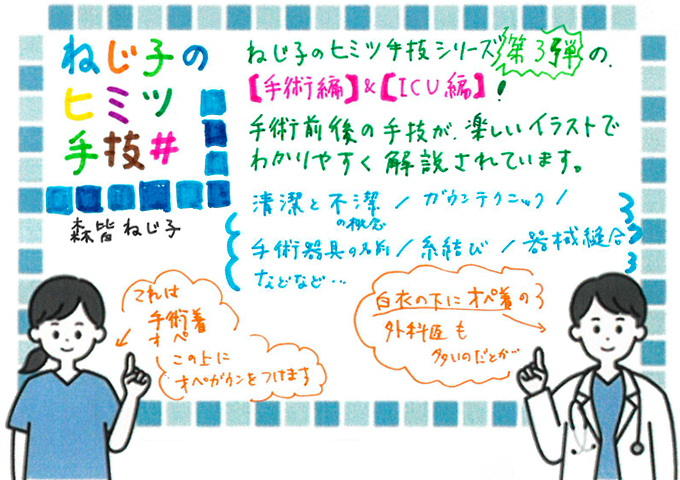 ねじ子の
ヒミツ
手技#
森皆ねじ子
ねじ子のヒミツ手技シリーズ第3弾の、
【手術編】&【ICU編】!
手術前後の手技が、楽しいイラストで
わかりやすく解説されています。
清潔と不潔の概念/ガウンテクニック/
手術器具の名前/糸結び/器械縫合
などなど…
これは
手術着
オペ
この上に
オペガウンをつけます
白衣の下にオペ着の
外科医も
多いのだとか